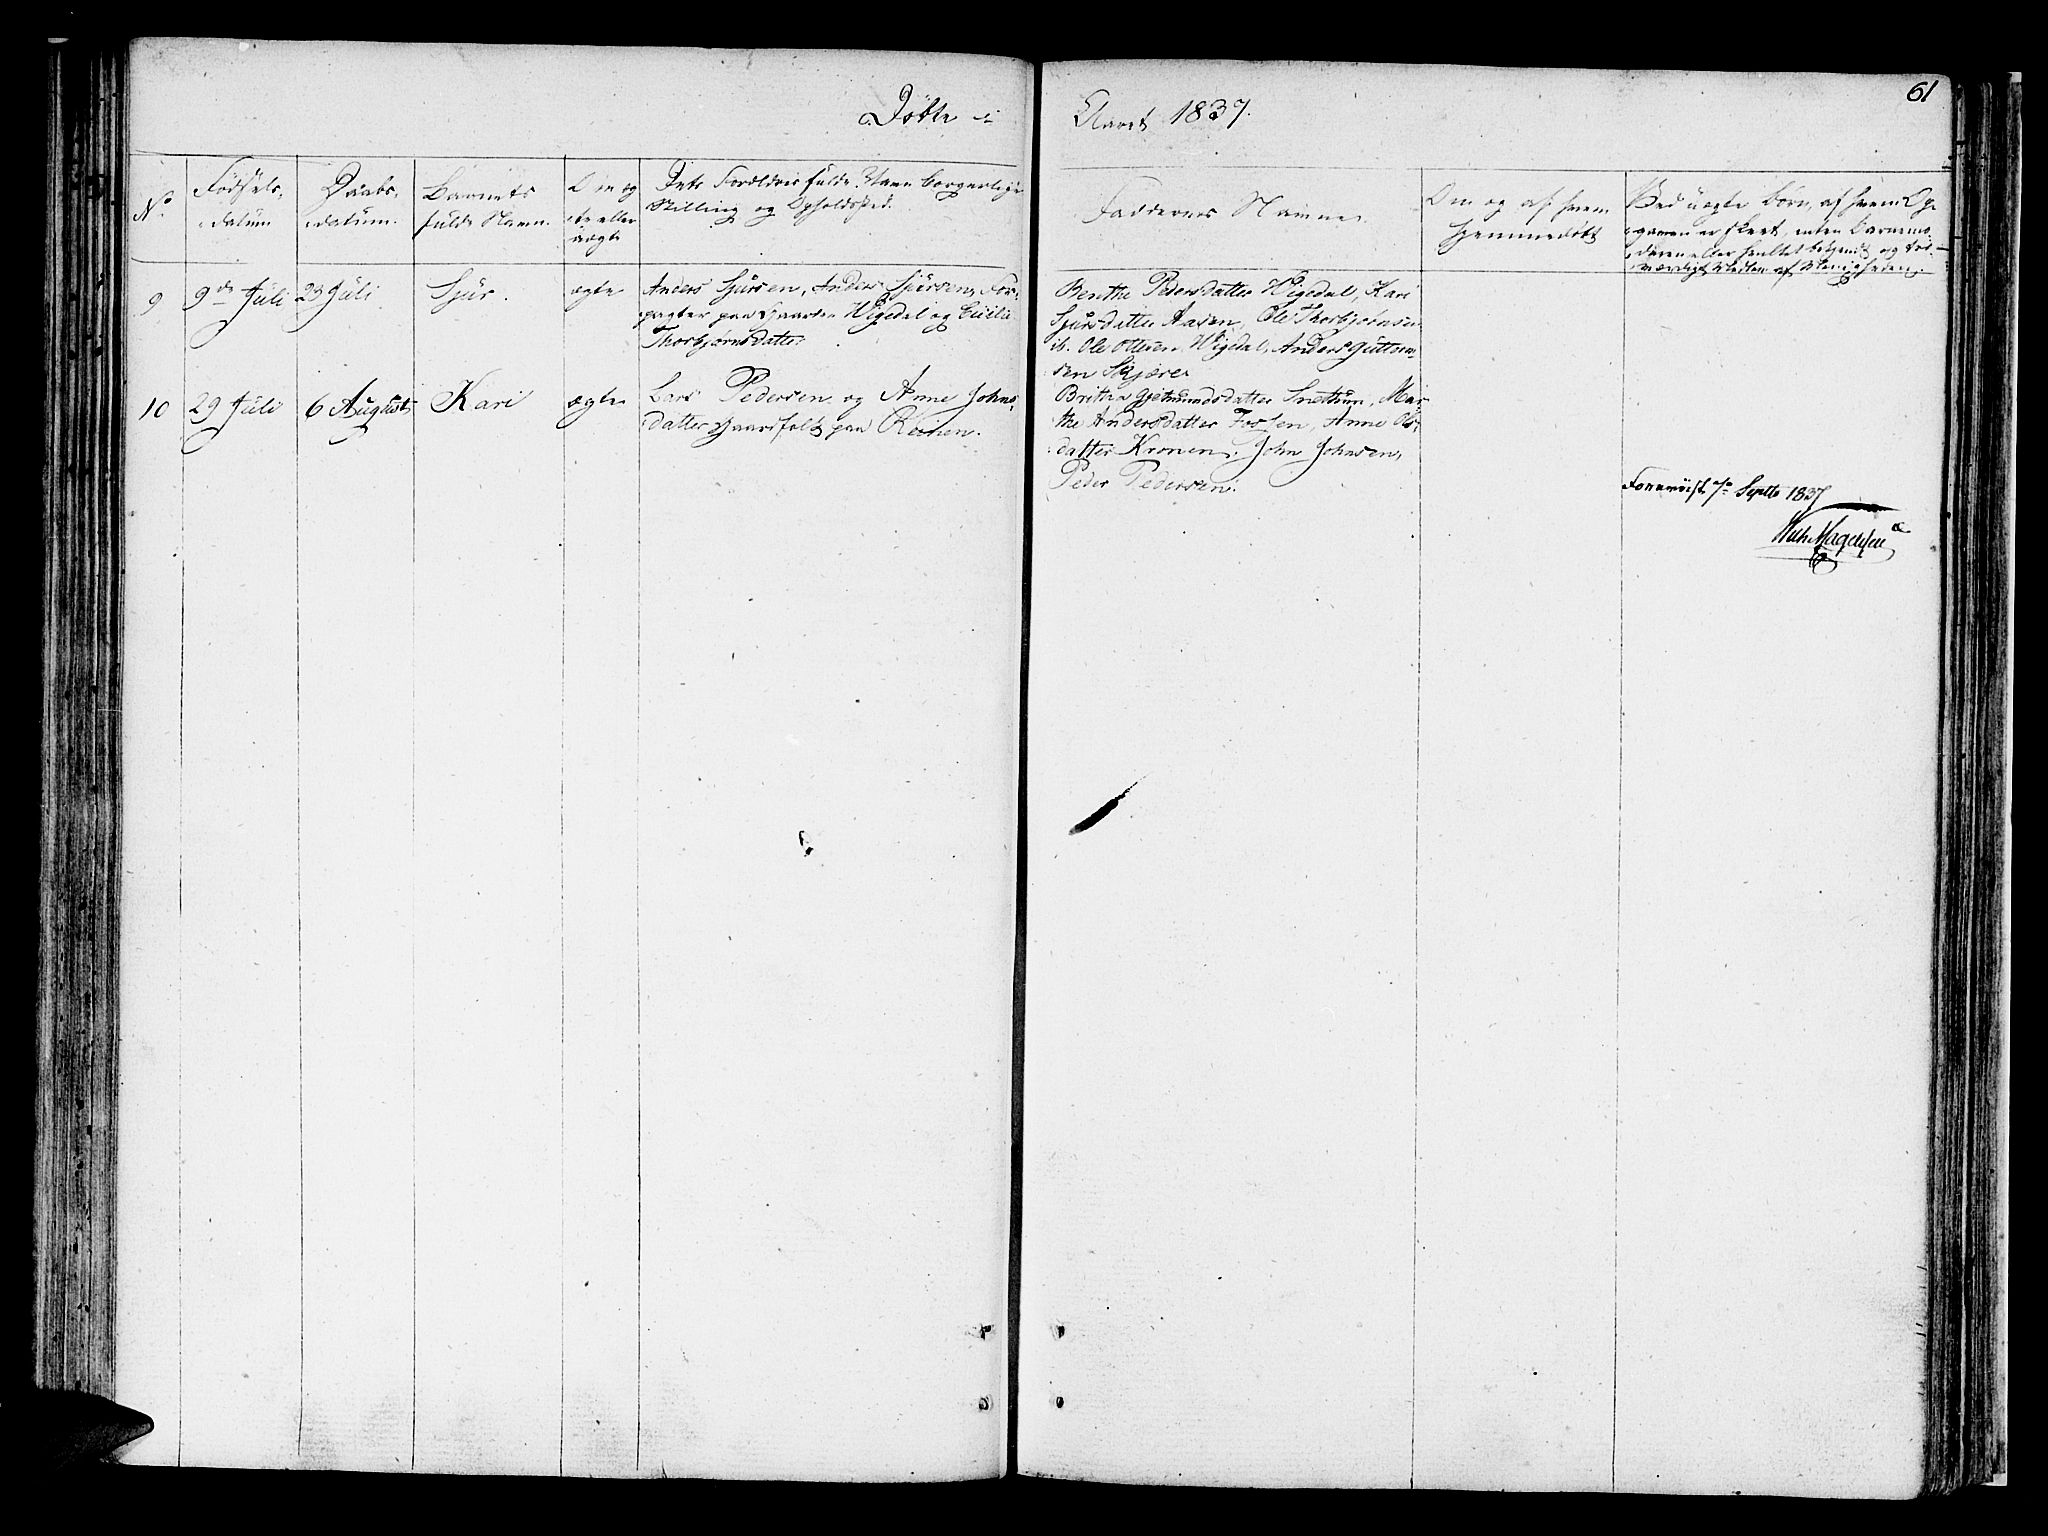 Döbte i Aaret 1837.
61
No.
Födsels-
datum
Daabs-
datum.
Barnets
fulde Navn.
Om æg-
te eller
uægte
Dets Forældres fulde Navn borgerlige
Stilling og Opholdssted.
Faddernes Navne.
Om og af hvem
hjemmedöbt
Ved uægte Börn, af hvem Op-
gaven er skeet, enten Barnemo-
deren eller
af Menigheden.
9
9de Juli
23 Juli
Sjur.
ægte
Anders Sjursen, Anders Sjursen, For-
pagter paa Gaarden Wigedal og
Thorbjørnsdatter
Berthe Pedersdatter Wigedal, Kari
Sjursdatter Aasen, Ole Thorbjobnsen
ib. Ole Ottesen Wigedal, Anders Guttorm-
sen Skjære
10
29 Juli
6 August
Kari
ægte
Lars Pedersen og Anne Johns-
datter Gaardfolk paa
Britha Gjetmundsdatter Mar-
the Andersdatter Fossen, Anne Ols-
datter Kronen, John Johnsen,
Peder Pedersen.
Foreviist 7de Septbr 1837